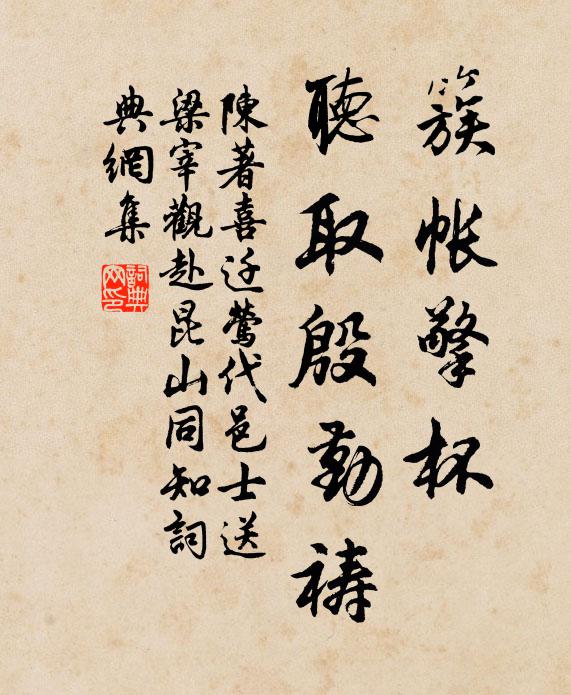 簇帳擎杯
聽取殷勤禱
陳著喜迁鶯代邑士送
梁宰觀赴昆山同知詞
典網集
詞典网印